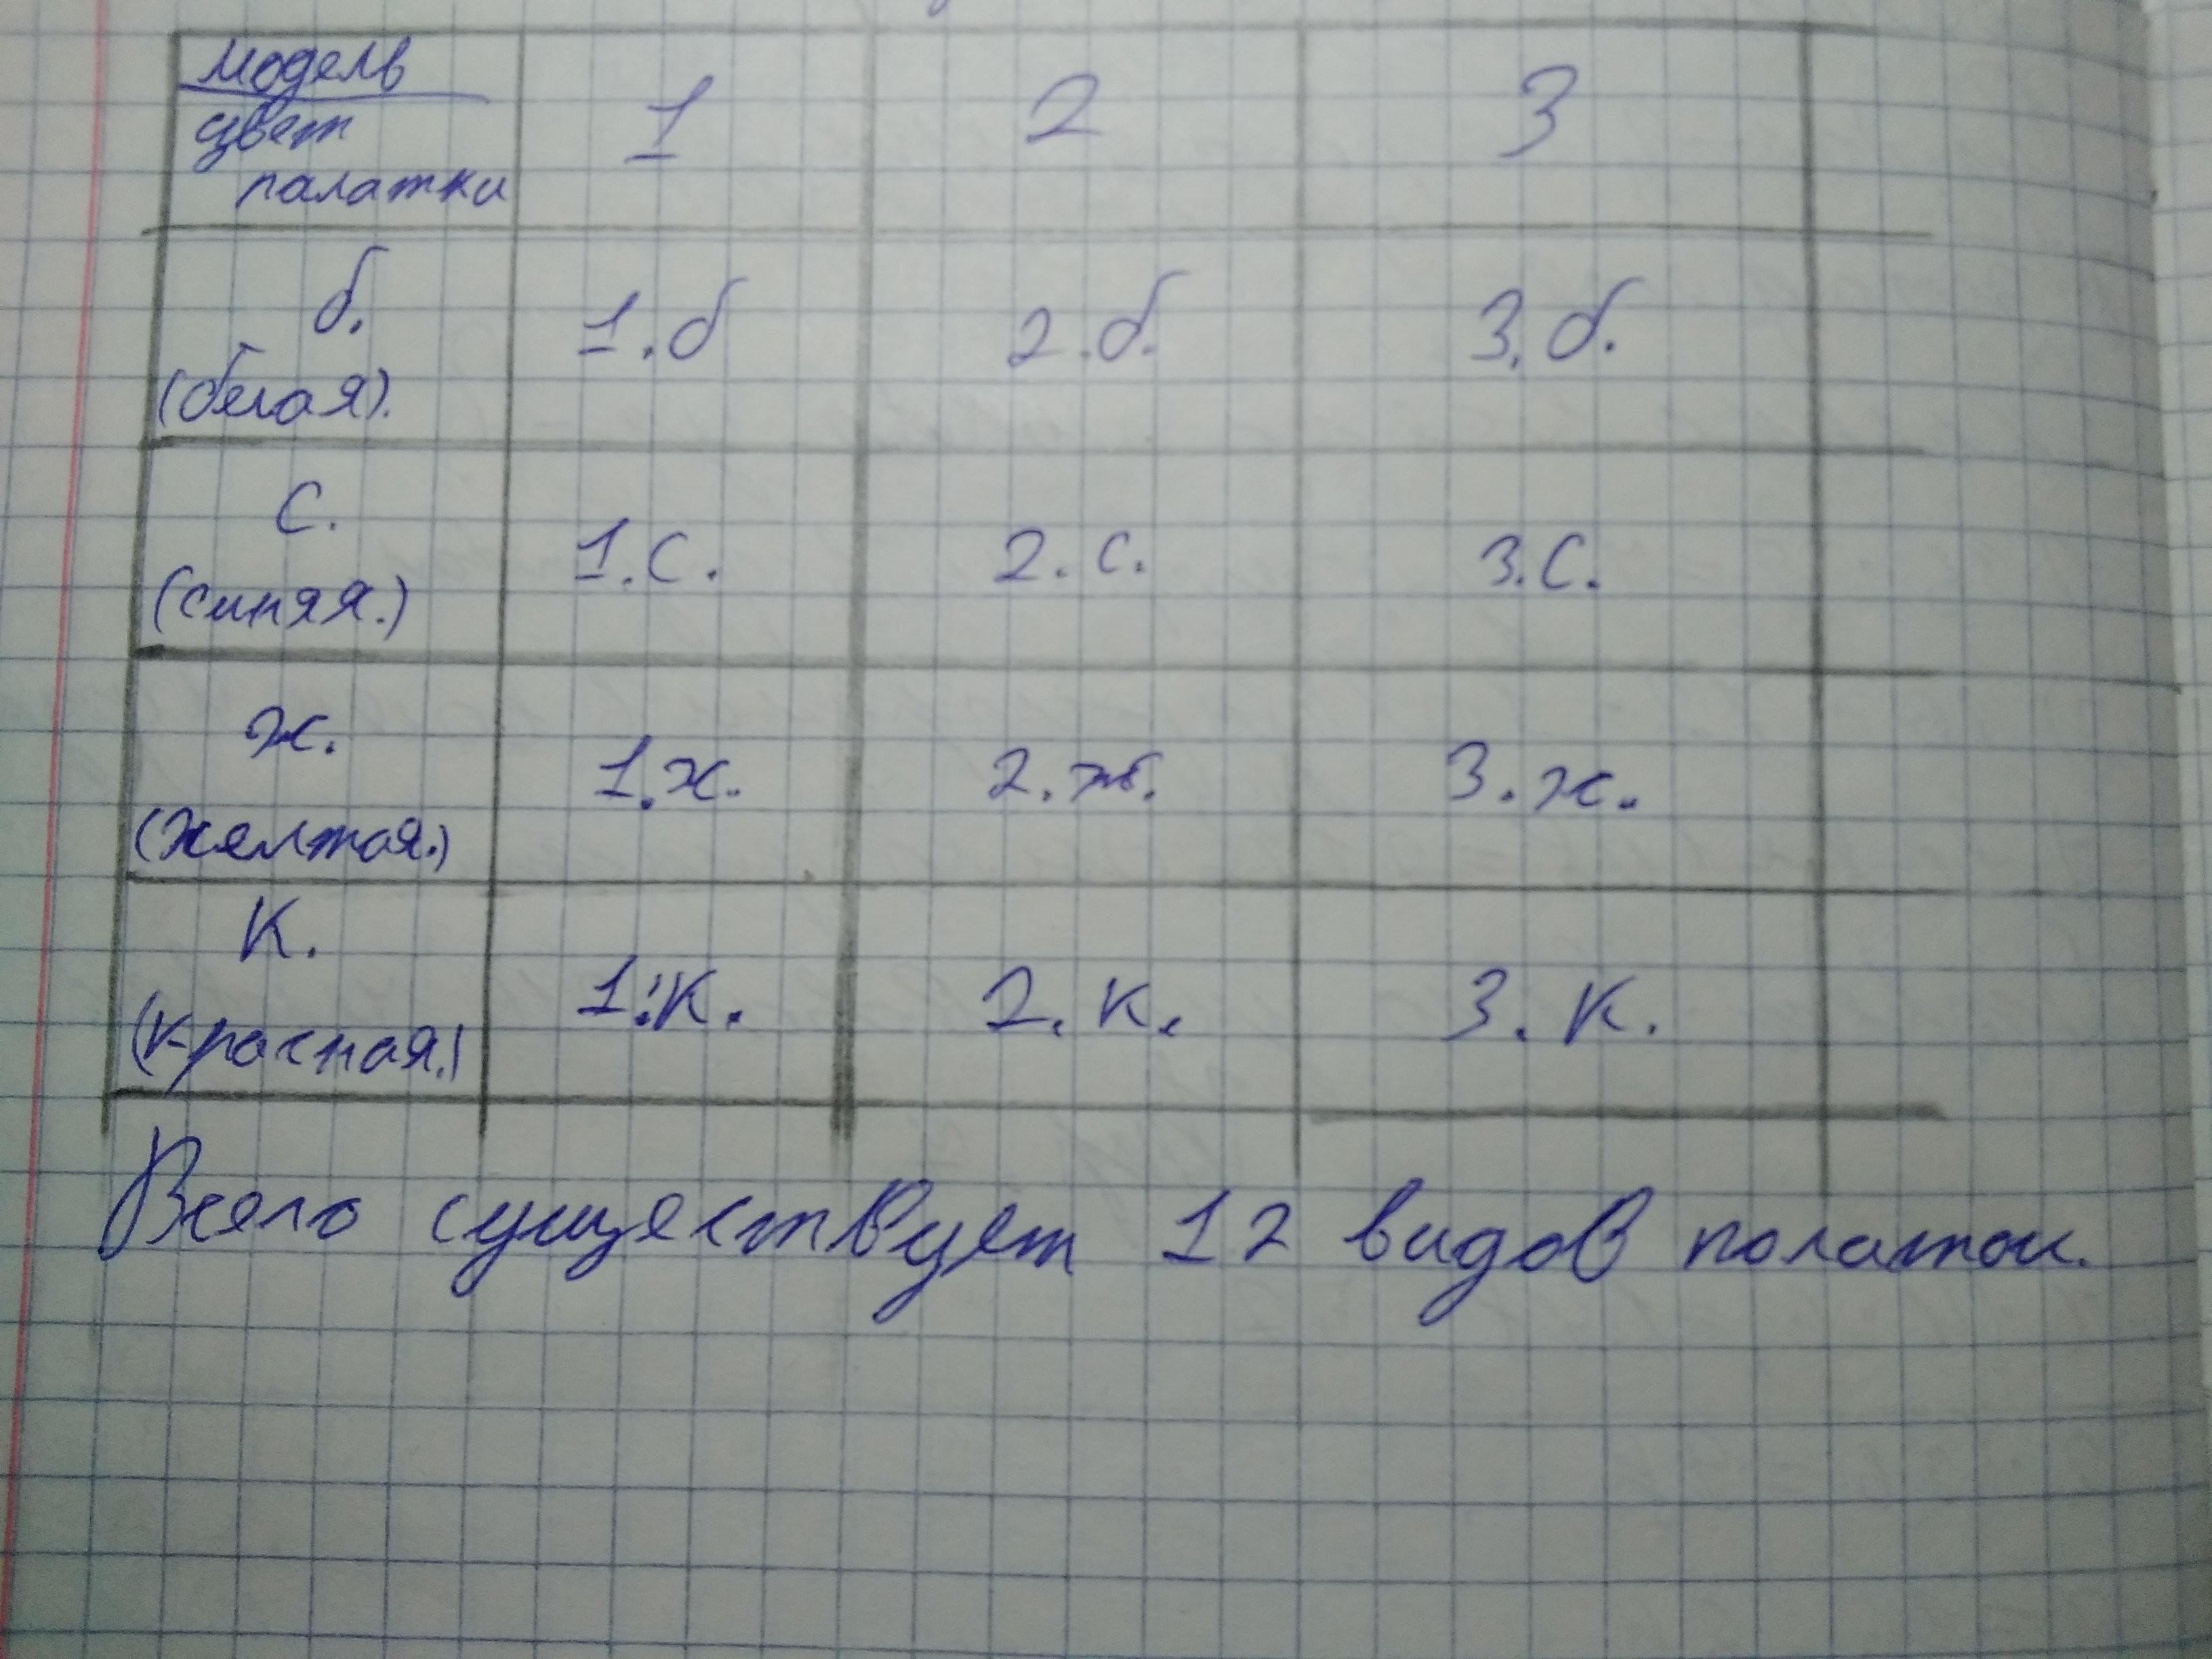 модель 1 2 3
цвет
палатки
б. 1.б 2.б. 3.б.
(белая).
с. 1.с. 2.с. 3.с.
(синяя.)
ж. 1.ж. 2.ж. 3.ж.
(желтая.)
К. 1.К. 2.К. 3.К.
(красная.)
Всего существует 12 видов полаток.